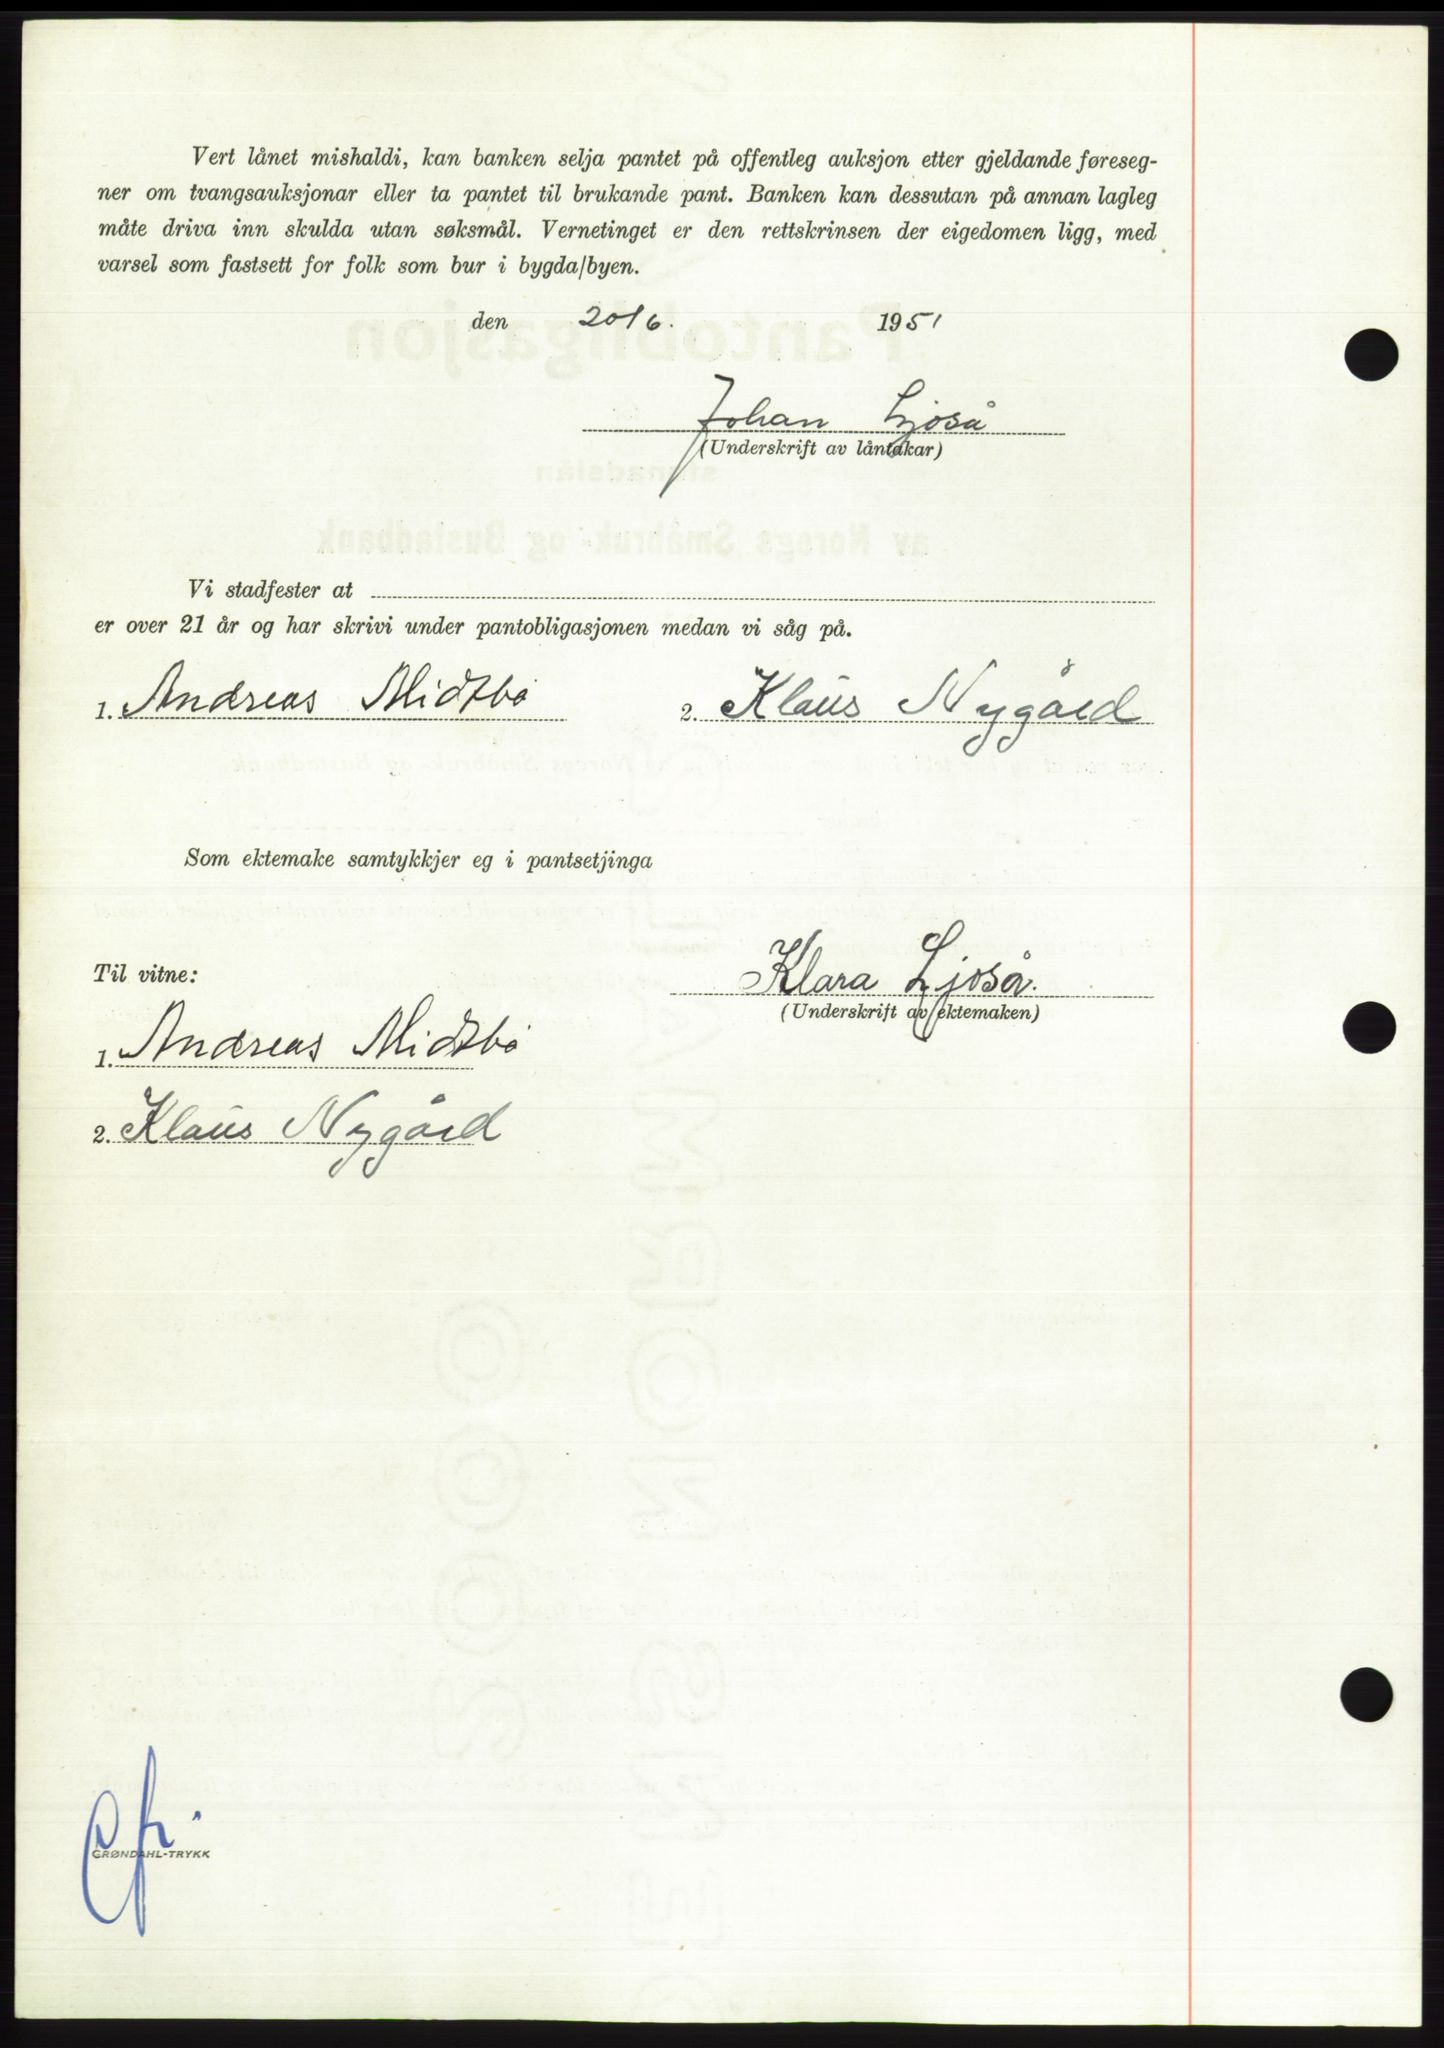 Vert lånet mishaldi, kan banken selja pantet på offentleg auksjon etter gjeldande føreseg-
ner om tvangsauksjonar eller ta pantet til brukande pant. Banken kan dessutan på annan lagleg
måte driva inn skulda utan søksmål. Vernetinget er den rettskrinsen der eigedomen ligg, med
varsel som fastsett for folk som bur i bygda/byen.
den 20/6. 1951
Johan Ljoså
(Underskrift av låntakar)
Vi stadfester at
er over 21 år og har skrivi under pantobligasjonen medan vi såg på.
1. Andreas Midtbø 2. Klaus Nygård
Som ektemake samtykkjer eg i pantsetjinga
Til vitne: Klara Ljoså.
(Underskrift av ektemaken)
1. Andreas Midtbø
2. Klaus Nygård
GRØNDAHL-TRYKK